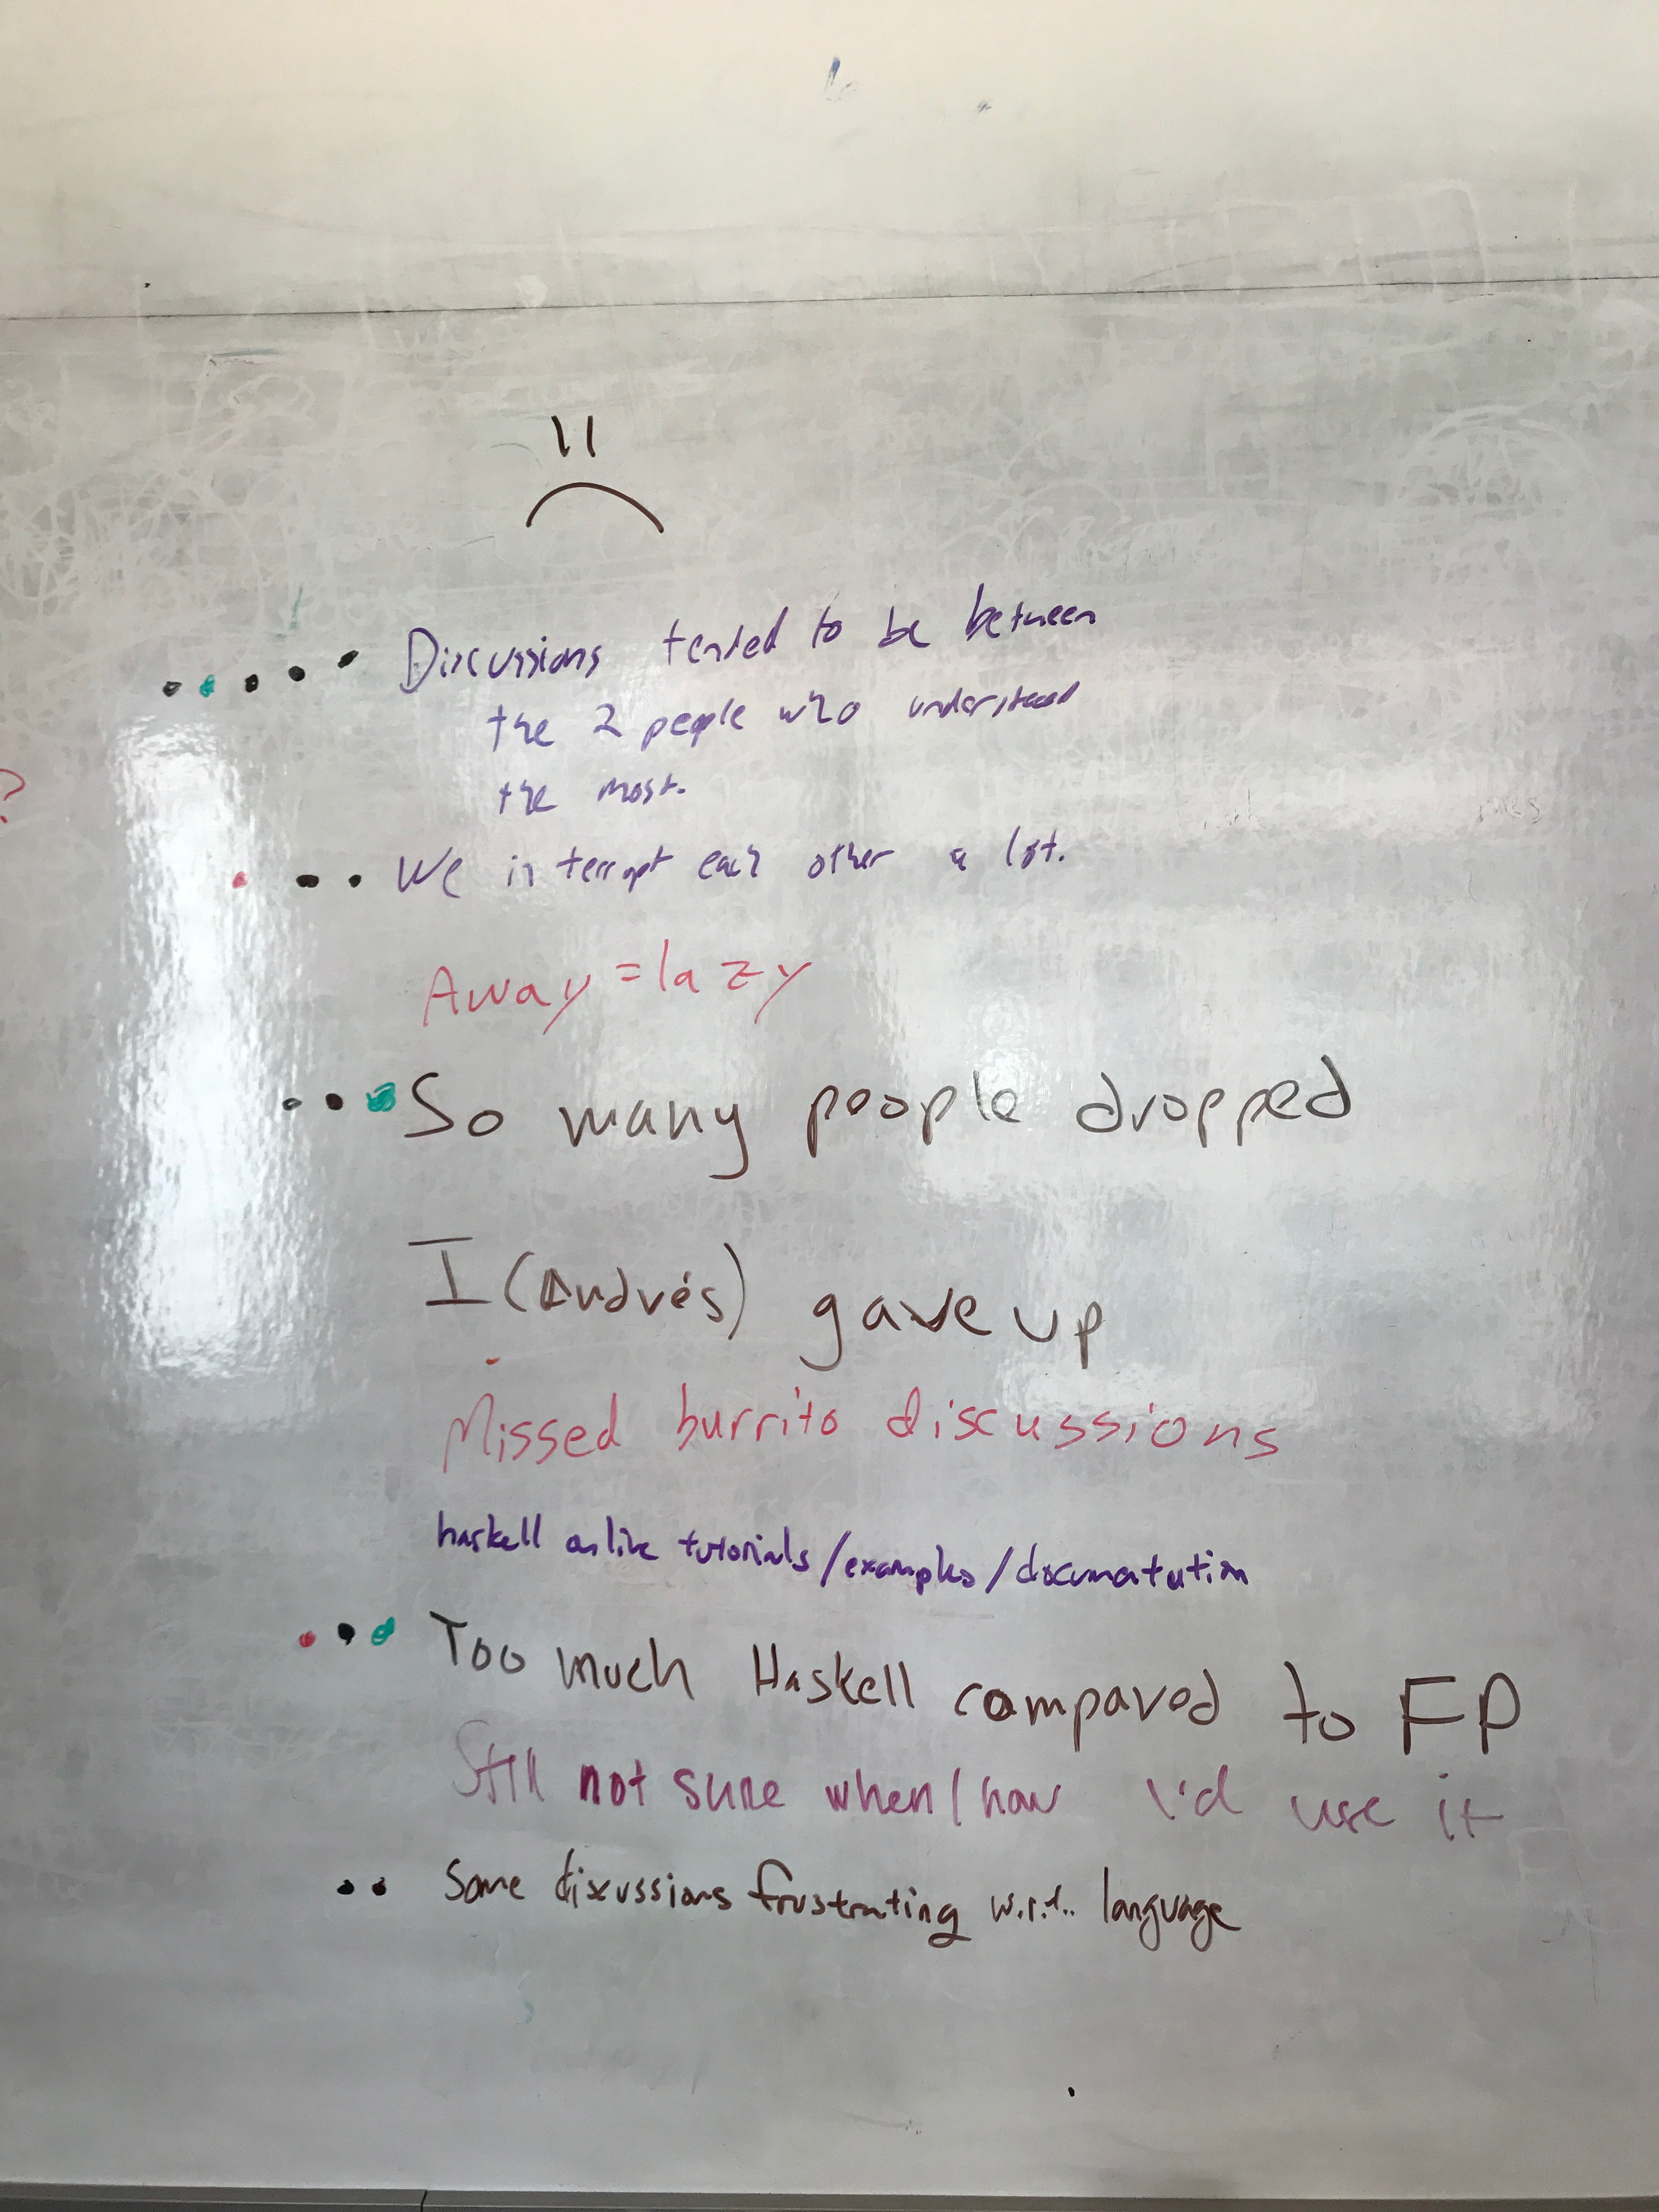 Discussions tended to be between
the 2 people who understood
the most.
?
We interrupt each other a lot.
Away = lazy
So many people dropped
I (Andrés) gave up
Missed burrito discussions
haskell online tutorials/examples/documentation
Too much Haskell compared to FP
Still not sure when/how I'd use it
Some discussions frustrating w.r.t. language